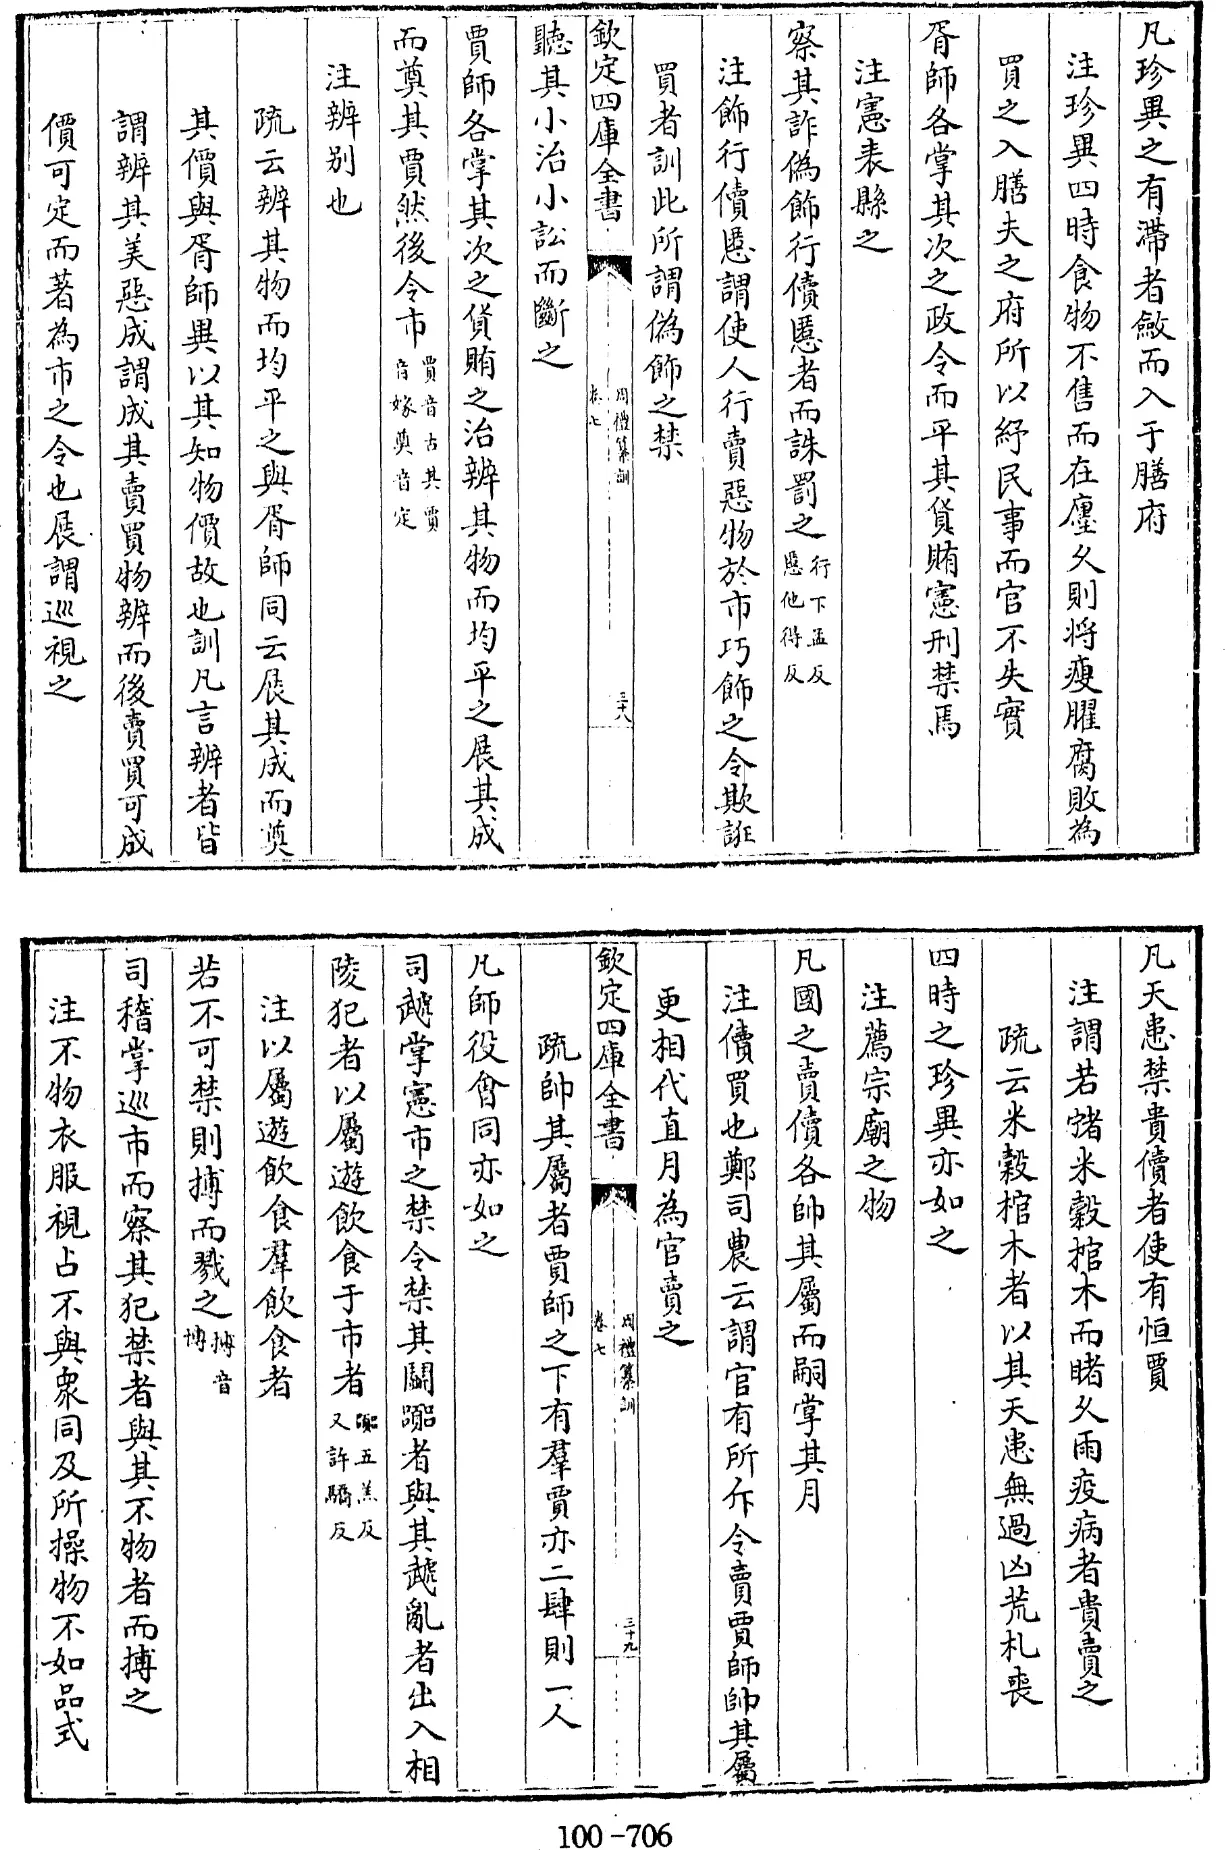 凡珍異之有滯者斂而入于膳府
注珍異四時食物不售而在廛久則將瘦臞腐敗為
買之入膳夫之府所以紓民事而官不失實
胥師各掌其次之政令而平其貨賄憲刑禁焉
注憲表縣之
察其詐偽飾行儥慝者而誅罰之行下孟反慝他得反
注飾行儥慝謂使人行賣惡物於市巧飾之令欺誑
買者訓此所謂偽飾之禁
欽定四庫全書
周禮纂訓
卷七
三十八
聽其小治小訟而斷之
賈師各掌其次之貨賄之治辨其物而均平之展其成
而奠其賈然後令市賈音古其賈音嫁奠音定
注辨別也
疏云辨其物而均平之與胥師同云展其成而奠
其價與胥師異以其知物價故也訓凡言辨者皆
謂辨其美惡成謂成其賣買物辨而後賣買可成
價可定而著為市之令也展謂巡視之
凡天患禁貴儥者使有恒賈
注謂若儲米穀棺木而睹久雨疫病者貴賣之
疏云米穀棺木者以其天患無過凶荒札喪
四時之珍異亦如之
注薦宗廟之物
凡國之賣儥各帥其屬而嗣掌其月
注儥買也鄭司農云謂官有所斥令賣賈師帥其屬
更相代直月為官賣之
欽定四庫全書
周禮纂訓
卷七
三十九
疏帥其屬者賈師之下有羣賈亦二肆則一人
凡師役會同亦如之
司虣掌憲市之禁令禁其鬭囂者與其虣亂者出入相
陵犯者以屬遊飲食于市者囂五羔反又許驕反
注以屬遊飲食羣飲食者
若不可禁則搏而戮之搏音博
司稽掌巡市而察其犯禁者與其不物者而搏之
注不物衣服視占不與衆同及所操物不如品式
100-706